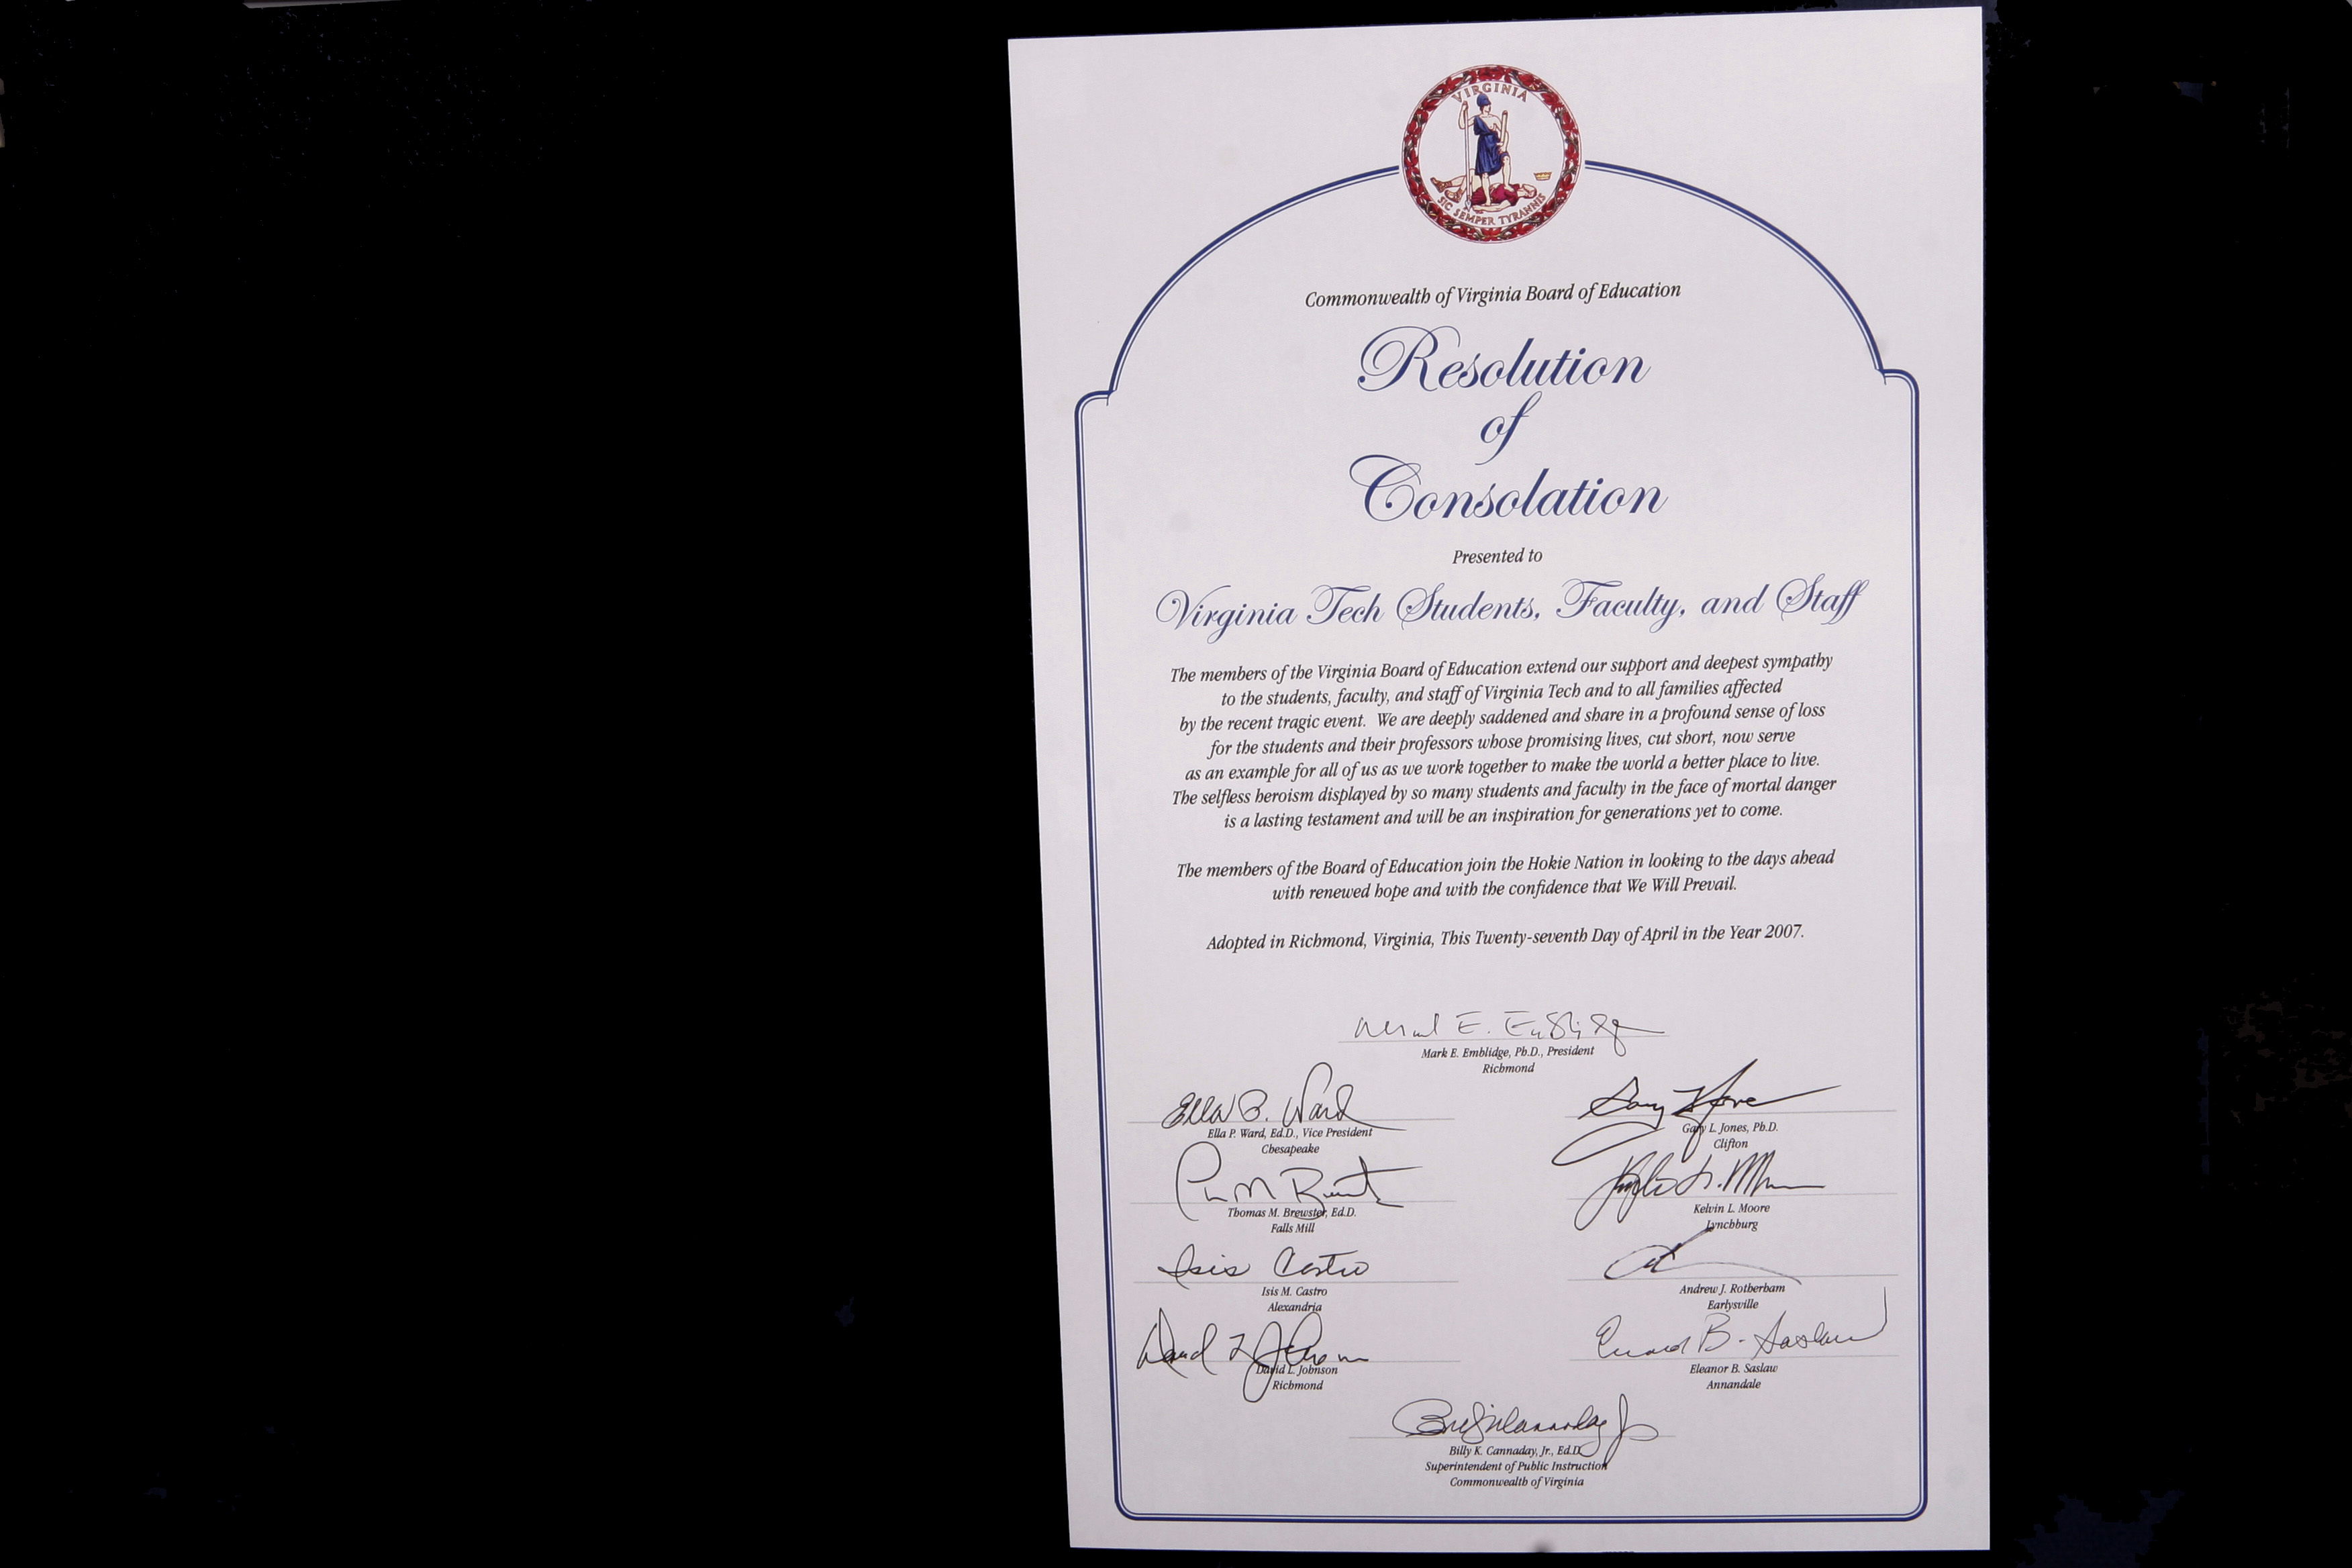 VIRGINIA
SIC SEMPER TYRANNIS
Commonwealth of Virginia Board of Education
Resolution
of
Consolation
Presented to
Virginia Tech Students, Faculty, and Staff
The members of the Virginia Board of Education extend our support and deepest sympathy
to the students, faculty, and staff of Virginia Tech and to all families affected
by the recent tragic event. We are deeply saddened and share in a profound sense of loss
for the students and their professors whose promising lives, cut short, now serve
as an example for all of us as we work together to make the world a better place to live.
The selfless heroism displayed by so many students and faculty in the face of mortal danger
is a lasting testament and will be an inspiration for generations yet to come.
The members of the Board of Education join the Hokie Nation in looking to the days ahead
with renewed hope and with the confidence that We Will Prevail.
Adopted in Richmond, Virginia, This Twenty-seventh Day of April in the Year 2007.
Mark E. Emblidge
Mark E. Emblidge, Ph.D., President
Richmond
Ella P. Ward
Ella P. Ward, Ed.D., Vice President
Chesapeake
Gary L. Jones, Ph.D.
Clifton
Thomas M. Brewster, Ed.D.
Falls Mill
Kelvin L. Moore
Lynchburg
Isis Castro
Isis M. Castro
Alexandria
Andrew J. Rotherham
Earlysville
David L. Johnson
David L. Johnson
Richmond
Eleanor B. Saslaw
Eleanor B. Saslaw
Annandale
Billy K. Cannaday, Jr., Ed.D.
Superintendent of Public Instruction
Commonwealth of Virginia